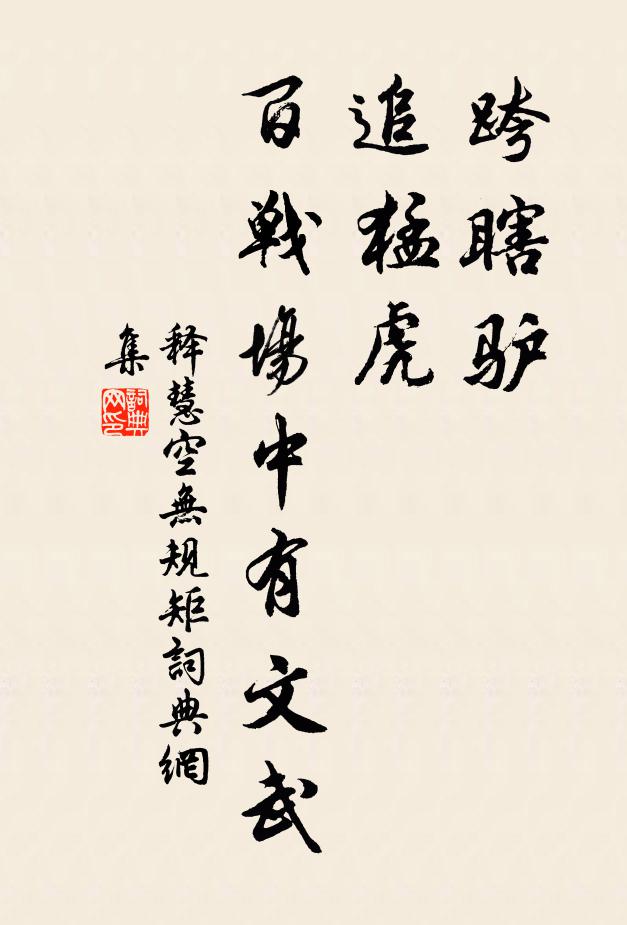 跨瞎驴
追猛虎
百戦場中有文武
释慧空無規矩詞典網
集
詞典
网印